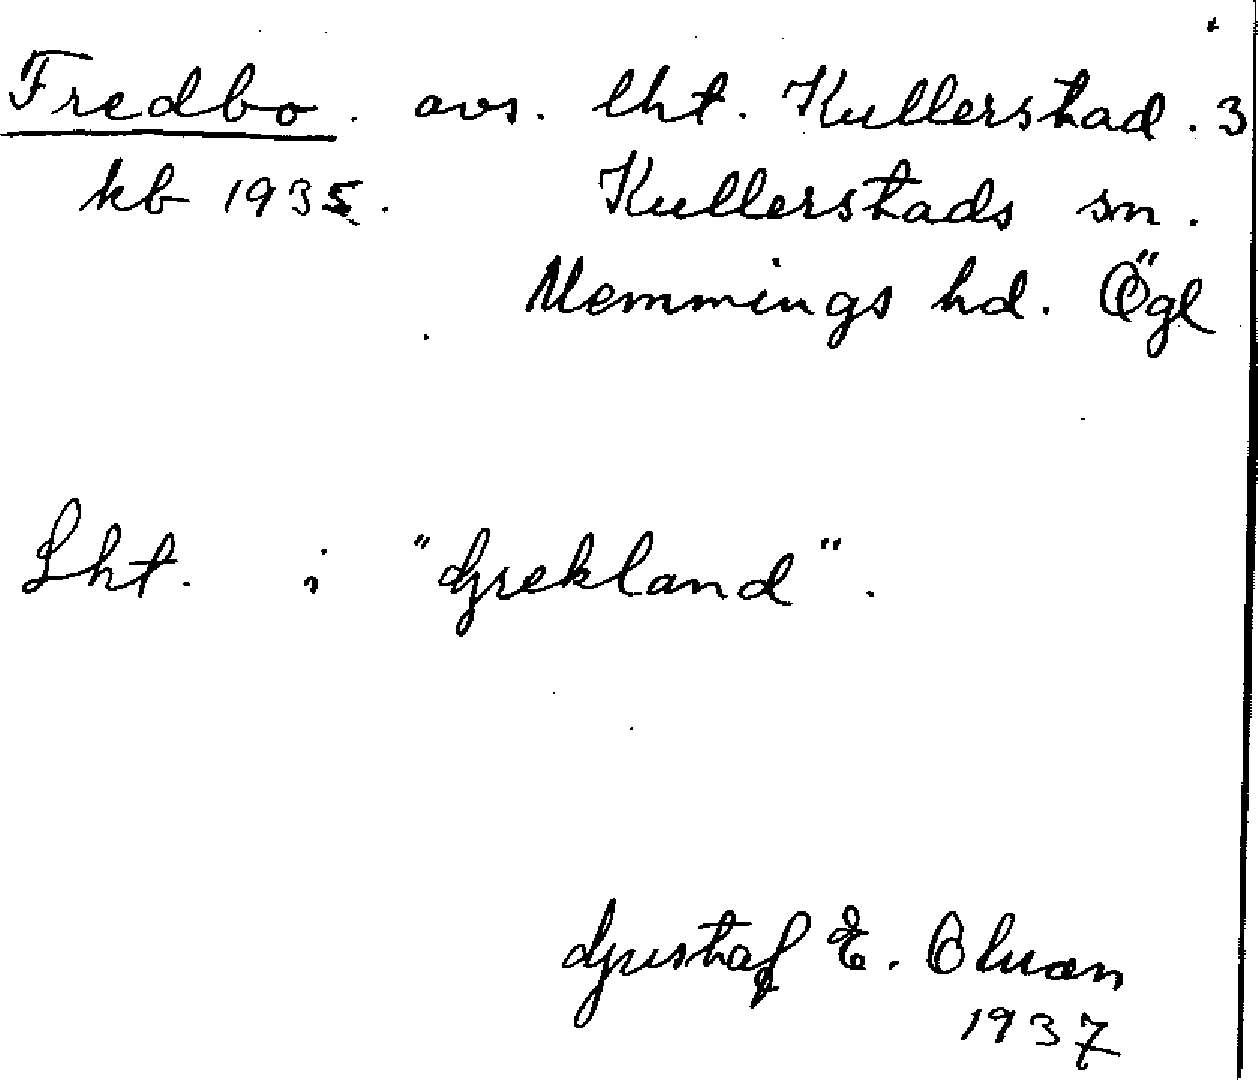 Fredbo. avs. lht. Kullerstad. 3
kb 1935. Kullerstads sn.
Memmings hd. Ögl
Lht. i "Grekland".
Gustaf E. Olsson
1937